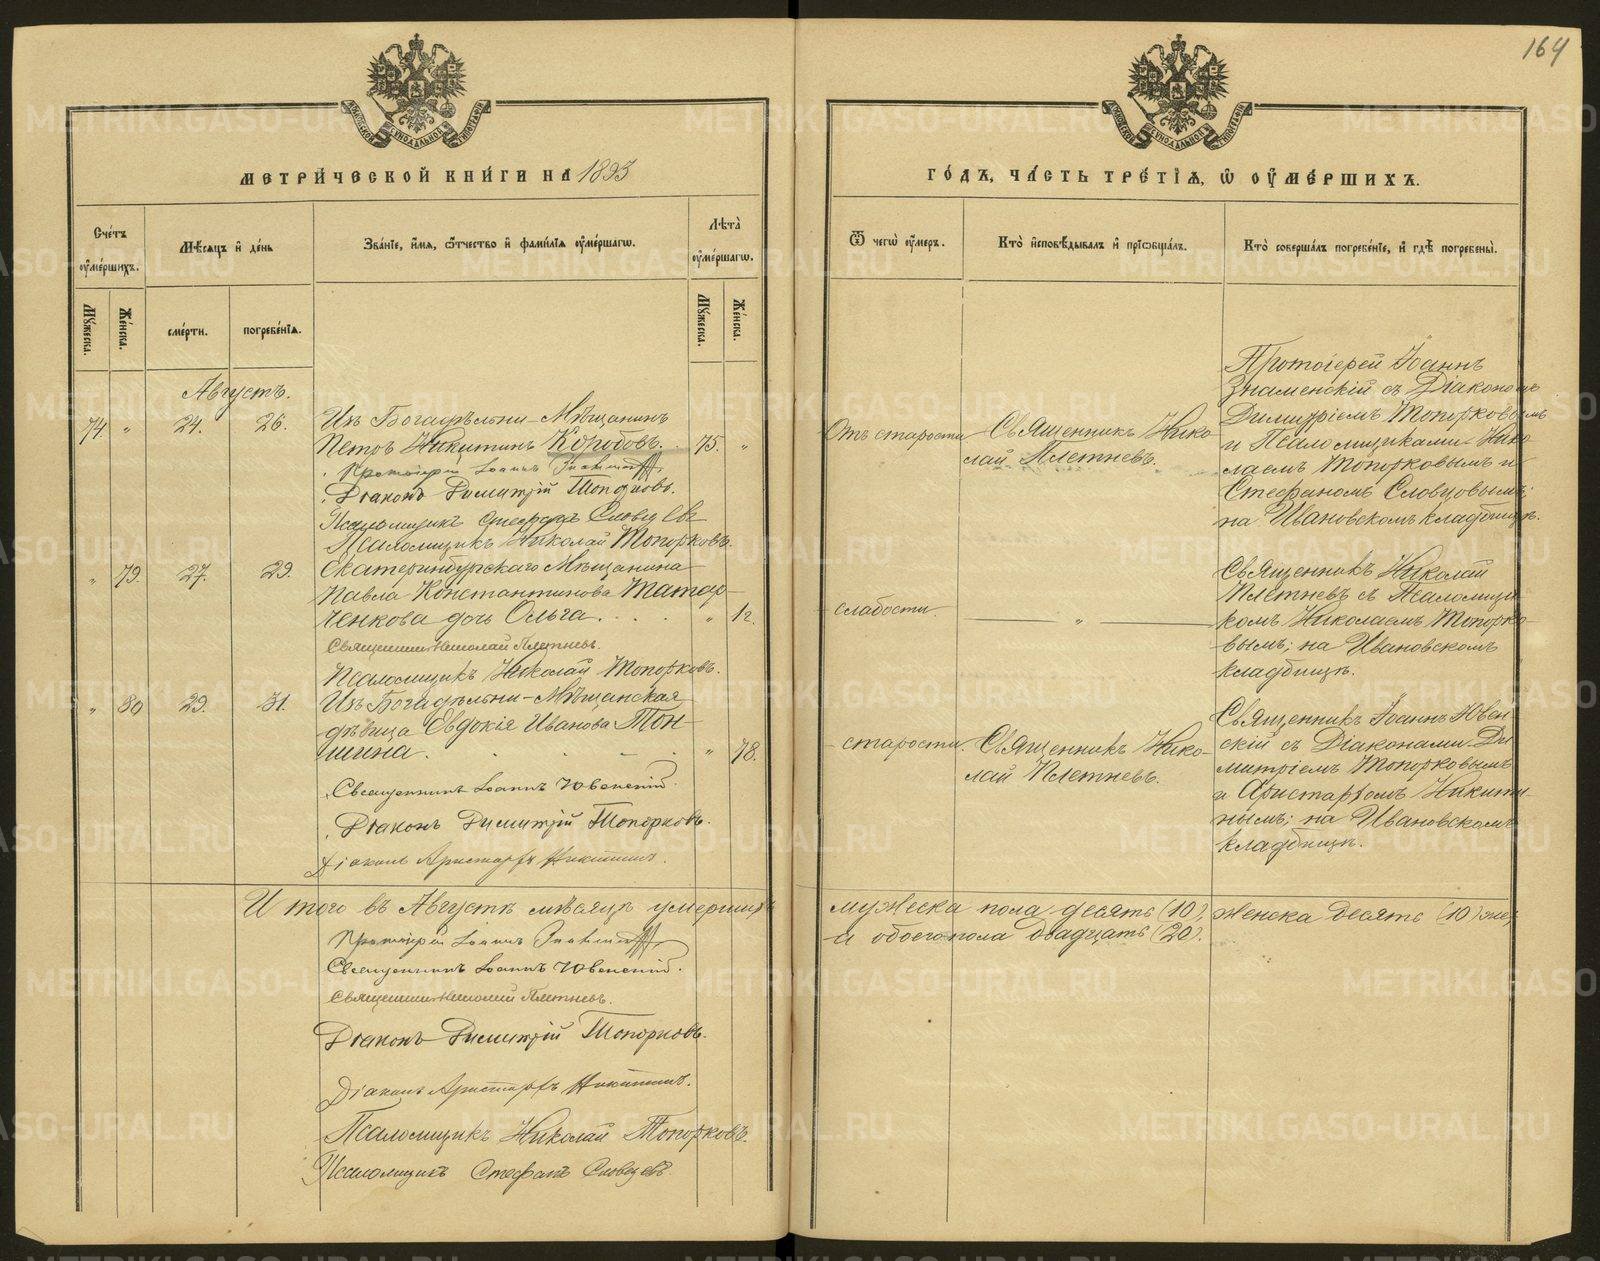 164
МЕТРИ́ЧЕСКОЙ КНИ́ГИ НА 1893
ГО́ДЪ, ЧА́СТЬ ТРЕ́ТІѦ, Ѡ҆ ОУ҆МЕ́РШИХЪ.
Сче́тъ оу҆ме́ршихъ.
Мѣ́сѧцъ и҆ де́нь
Зва́нїе, и҆́мѧ, ѻ҆́тчество и҆ фами́лїѧ оу҆ме́ршагѡ.
Лѣ́та оу҆ме́ршагѡ.
Ѿ чегѡ̀ оу҆́меръ.
Кто̀ и҆сповѣ́дывалъ и҆ прїѡбща́лъ.
Кто̀ соверша́лъ погребе́нїе, и҆ гдѣ̀ погребены̀.
Мꙋ́жеска.
Же́нска.
сме́рти.
погребе́нїѧ.
Мꙋ́жеска.
Же́нска.
Августъ.
74 " 24. 26.
Изъ Богадѣльни – Мѣщанинъ
Петръ Никитинъ 75. "
Протоіерей Іоаннъ Знаменскій
Діаконъ Димитрій Топорковъ.
Псаломщикъ Стефанъ Словцевъ
Псаломщикъ Николай Топорковъ.
Отъ старости
Священникъ Нико-
лай Плетневъ.
Протоіерей Іоаннъ
Знаменскій съ Діакономъ
Димитріемъ Топорковымъ
и Псаломщиками Нико-
лаемъ Топорковымъ и
Стефаномъ Словцовымъ;
на Ивановскомъ кладбищѣ.
" 79. 27. 29.
Екатеринбургскаго Мѣщанина
Павла Константинова Татар-
ченкова дочь Ольга . . . . "
Священникъ Николай Плетневъ.
Псаломщикъ Николай Топорковъ.
слабости
"
Священникъ Николай
Плетневъ съ Псаломщи-
комъ Николаемъ Топорко-
вымъ; на Ивановскомъ
кладбищѣ.
" 80 29. 31.
Изъ Богадѣльни – Мѣщанская
дѣвица Евдокія Иванова Тон-
шина. " 78.
Священникъ Іоаннъ Ювенскій.
Діаконъ Димитрій Топорковъ.
Діаконъ Аристархъ Никитинъ.
старости.
Священникъ Нико-
лай Плетневъ.
Священникъ Іоаннъ Ювен-
скій съ Діаконами Ди-
митріемъ Топорковымъ
и Аристархомъ Никити-
нымъ; на Ивановскомъ
кладбищѣ.
Итого въ Августѣ мѣсяцѣ умершихъ мужеска пола десять (10), женска десять (10)
а обоего пола двадцать (20).
Протоіерей Іоаннъ Знаменскій
Священникъ Іоаннъ Ювенскій.
Священникъ Николай Плетневъ.
Діаконъ Димитрій Топорковъ.
Діаконъ Аристархъ Никитинъ.
Псаломщикъ Николай Топорковъ.
Псаломщикъ Стефанъ Словцевъ.
METRIKI.GASO-URAL.RU